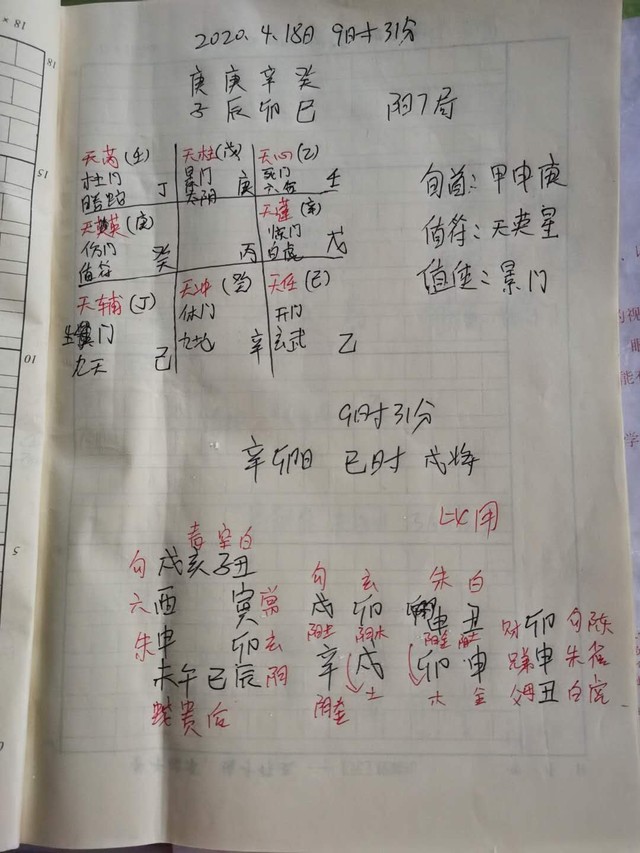 2020.4.18日 9时31分
庚 庚 辛 癸
子 辰 卯 巳 阳7局
天芮(壬) 天柱(戊) 天心(乙)
杜门 景门 死门
丁 太阴 庚 六合 壬
天英(庚) 天蓬(辛)
伤门 惊门
值符 癸 丙 白虎 戊
天辅(丁) 天冲(癸) 天任(己)
生门 休门 开门
九天 己 九地 辛 玄武 乙
旬首:甲申庚
值符:天英星
值使:景门
9时31分
辛卯日 巳时 戌将
比用
青 空 白
勾 戌 亥 子 丑
六 酉 寅 常
朱 申 卯 玄
未 午 巳 辰 阴
蛇 贵 后
勾 玄 朱 白
戌 卯 申 丑
阳土 阴木 阳金 阴土
辛 戌 卯 申
阴金 土 木 金
财 卯 勾陈
申 朱雀
父母 丑 白虎
18
15
10
5